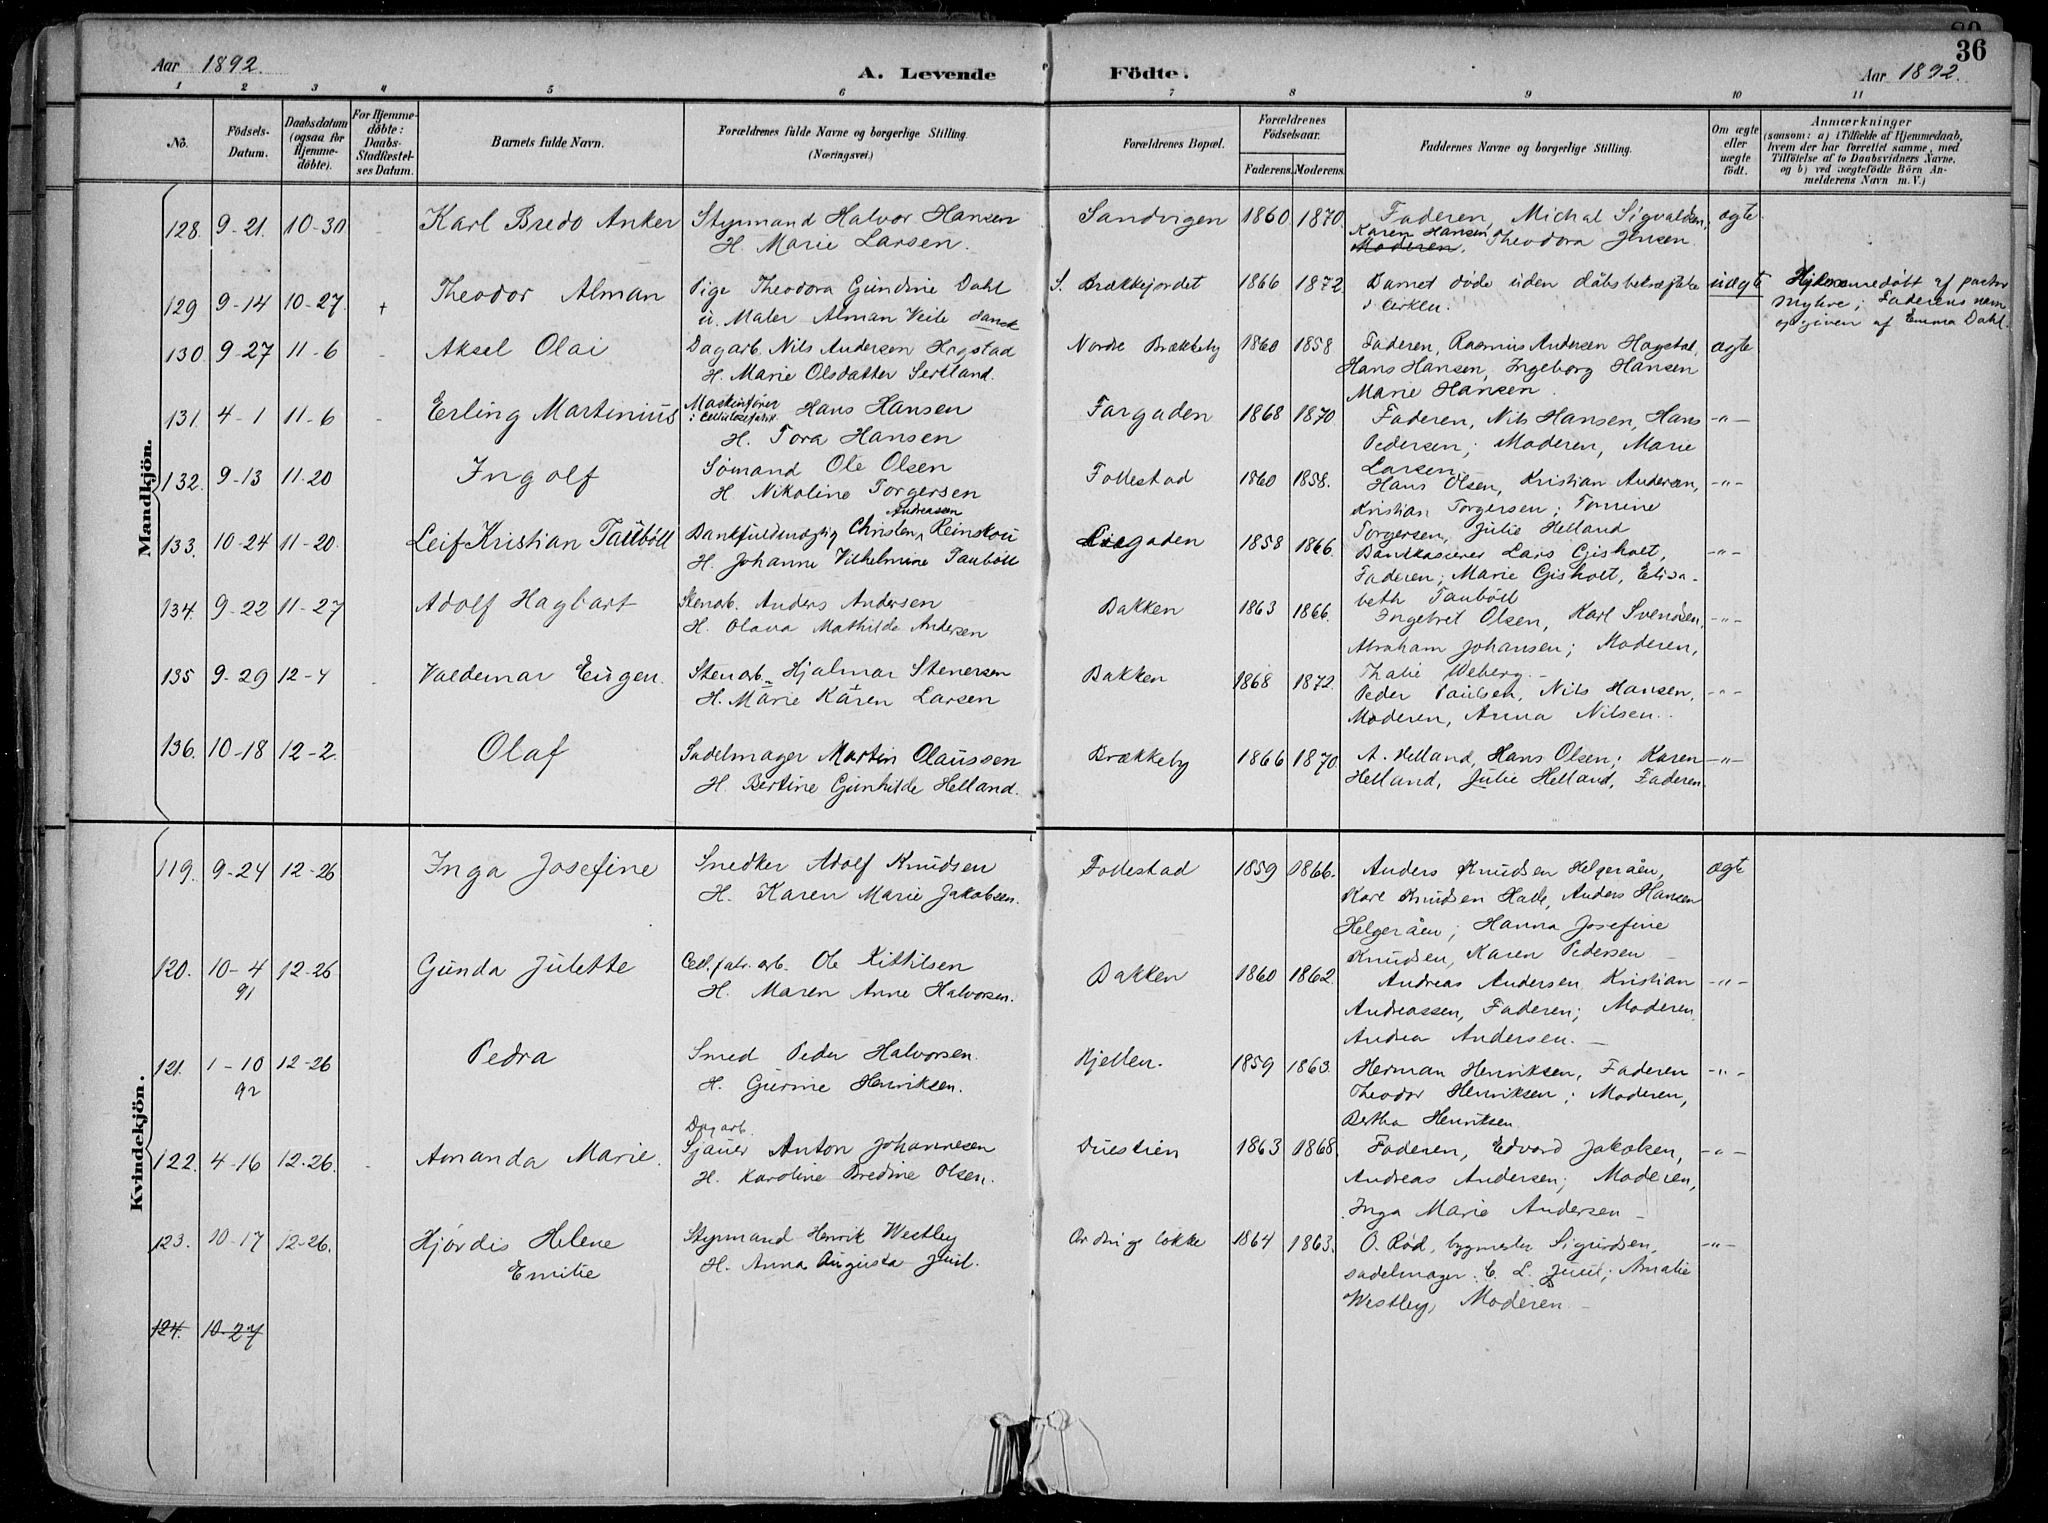 Aar 1892.
A. Levende Födte.
Aar 1892.
36
1 2 3 4 5 6 7 8 9 10 11
No.
Födsels-Datum.
Daabsdatum (ogsaa for Hjemme-döbte).
For Hjemme-döbte: Daabs-Stadfæstel-ses Datum.
Barnets fulde Navn.
Forældrenes fulde Navne og borgerlige Stilling. (Næringsvei.)
Forældrenes Bopæl.
Forældrenes Födselsaar.
Faderens. Moderens.
Faddernes Navne og borgerlige Stilling.
Om ægte eller uægte födt.
Anmærkninger
(saasom: a) i Tilfælde af Hjemmedaab, hvem der har forrettet samme, med Tilföielse af to Daabsvidners Navne, og b) ved uægtefödte Börn An-melderens Navn m. V.)
Mandkjön.
128. 9-21. 10-30 - Karl Bredo Anker Styrmand Halvor Hansen Sandvigen 1860 1870. Faderen, Michal Sigvaldsen, ægte.
H. Marie Larsen. Karen Hansen, Moderen, Theodora Jensen.
129 9-14 10-27. + Theodor Alman Pige Theodora Gundine Dahl S. Brækkejordet 1866 1872 Barnet døde uden dåbsbekræftelse uægte Hjemmedøbt af pastor
u. Maler Alman Veile dansk i kirken. Myhre; Faderens navn
opgiven af Emma Dahl.
130 9-27 11-6 - Aksel Olai Dagarb. Nils Andersen Hogstad Nordre Brækkeby 1860 1858 Faderen, Rasmus Andersen Hogstad, ægte
H. Marie Olsdatter Sertland. Hans Hansen, Ingeborg Hansen
Marie Hansen.
131. 4-1 11-6 - Erling Martinius Maskinfører i Cellulosefabr. Hans Hansen Torgaden 1868 1870 Faderen, Nils Hansen, Hans -"-
H. Tora Hansen Pedersen; Moderen, Marie
Larsen.
132. 9-13 11-20 Ingolf Sømand Ole Olsen Follestad 1860 1858. Hans Olsen, Kristian Andersen, -"-
H. Nikoline Torgersen Kristian Torgersen; Tomine
Torgersen, Julie Helland
133. 10-24 11-20. Leif Kristian Taubøll Bankfuldmægtig Christen Andreassen Reinskou 1858 1866. Bankkasserer Lars Gisholt, -"-
H. Johanne Vilhelmine Taubøll Faderen; Marie Gisholt, Elisa-
beth Taubøll
134. 9-22 11-27 Adolf Hagbart Stenarb. Anders Andersen Bakken 1863 1866. Ingebret Olsen, Karl Svendsen, -"-
H. Olava Mathilde Andersen Abraham Johansen; Moderen,
Thalie Weberg.
135 9-29 12-4 Valdemar Eugen. Stenarb. Hjalmar Stenersen Bakken 1868 1872. Peder Paulsen, Nils Hansen, -"-
H. Marie Karen Larsen Moderen, Anna Nilsen.
136. 10-18 12-2. Olaf Sadelmager Martin Olaussen Brækkeby 1866 1870. A. Helland, Hans Olsen; Karen -"-
H. Bertine Gunhilde Helland. Helland, Julie Helland, Faderen.
Kvindekjön.
119. 9-24 12-26 Inga Josefine Snedker Adolf Knudsen Follestad 1859 1866. Anders Knudsen Helgeråen, ægte
H. Karen Marie Jakobsen. Karl Knudsen Halle, Anders Hansen
Helgeråen; Hanna Josefine
Knudsen, Karen Pedersen
120. 10-4 91 12-26 Gunda Julette Cell.fabr.arb. Ole Kittilsen Bakken 1860 1862. Andreas Andersen, Kristian -"-
H. Maren Anne Halvorsen. Andreassen, Faderen; Moderen,
Andrea Andersen.
121. 1-10 92 12-26 Pedra Smed Peder Halvorsen. Kjellen. 1859 1863. Herman Henriksen, Faderen -"-
H. Gurine Henriksen. Theodor Henriksen; Moderen,
Bertha Henriksen.
122. 4-16 12-26. - Amanda Marie. Dagarb. Sjauer Anton Johannesen Duestien 1863 1868. Faderen, Edvard Jakobsen, -"-
H. Karoline Bredine Olsen. Andreas Andersen; Moderen,
Inga Marie Andersen
123. 10-17 12-26. Hjørdis Helene Emilie Styrmand Henrik Westley løkke 1864 1863. O. Rød, bygmester Sigurdsen, -"-
H. Anna Augusta Juul. sadelmager. C. L. Juul; Amalie
Westley, Moderen
124. 10-27